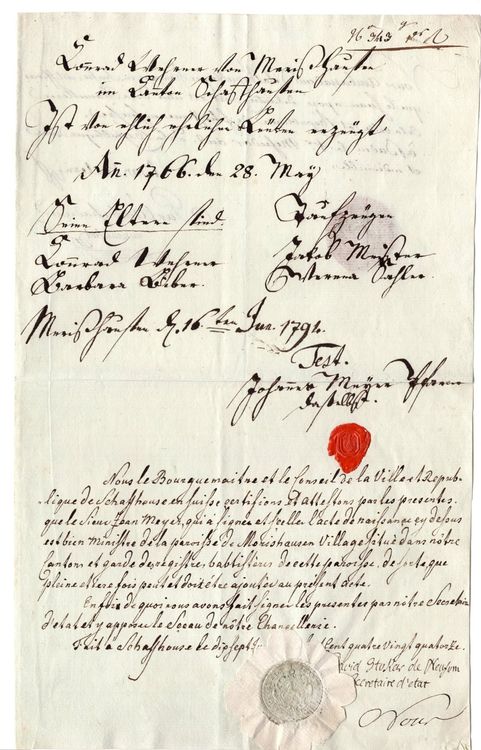 Conrad Wehrner von Merishausen
im Canton Schaffhausen
Ist von ehlich ehrlichen Leüten erzeügt
Añ. 1766. den 28. Meÿ
Seine Eltern sind. Taüfzeügen
Conrad Wehrner Jakob Meister
Barbara Biber. Verena Sahler.
Merishausen d. 16.ten Jun. 1794.
Test.
Johannes Meyer Pfarrer
daselbst.
Nous le Bourguemaitre et le Conseil de la Ville et Repub-
-lique de Schaffhouse en suisse certifions et attestons par les presentes.
que le Sieur Jean Meyer, qui a signé et scellé l'acte de naissance cy dessus
est bien Ministre de la paroisse de Merishausen Village situé dans nôtre
Canton et garde des registres baptistères de cette paroisse, de sorte que
pleine et entiere fois peut et doit être ajoutée au présent acte.
En foi de quoi nous avons fait signer les presentes par nôtre Secretaire
d'état et y apposer le Sceau de nôtre Chancellerie.
Fait à Schaffhouse le dixsept Cent quatre Vingt quatorze.
Secretaire d'état